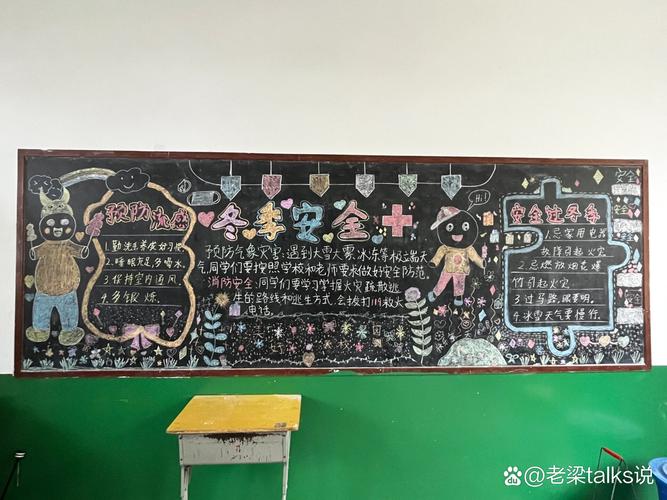 冬季安全
Hi!
预防流感
1.勤洗手養成好习惯
2.睡眠充足多喝水
3.保持室内通风
4.多锻炼.
预防气象灾害:遇到大雪大雾,冰冻等极端天
气,同学们要按照学校和老师要求做好安全防范.
消防安全:同学们要学习掌握火灾疏散逃
生的路线和逃生方式,会拔打119救火
电话.
安全过冬季
1.忌家用电器
故障引起火灾
2.忌燃放烟花爆
竹引起火灾.
3.过马路,眼要明.
4.冰雪天气要慢行.
@老梁talks说